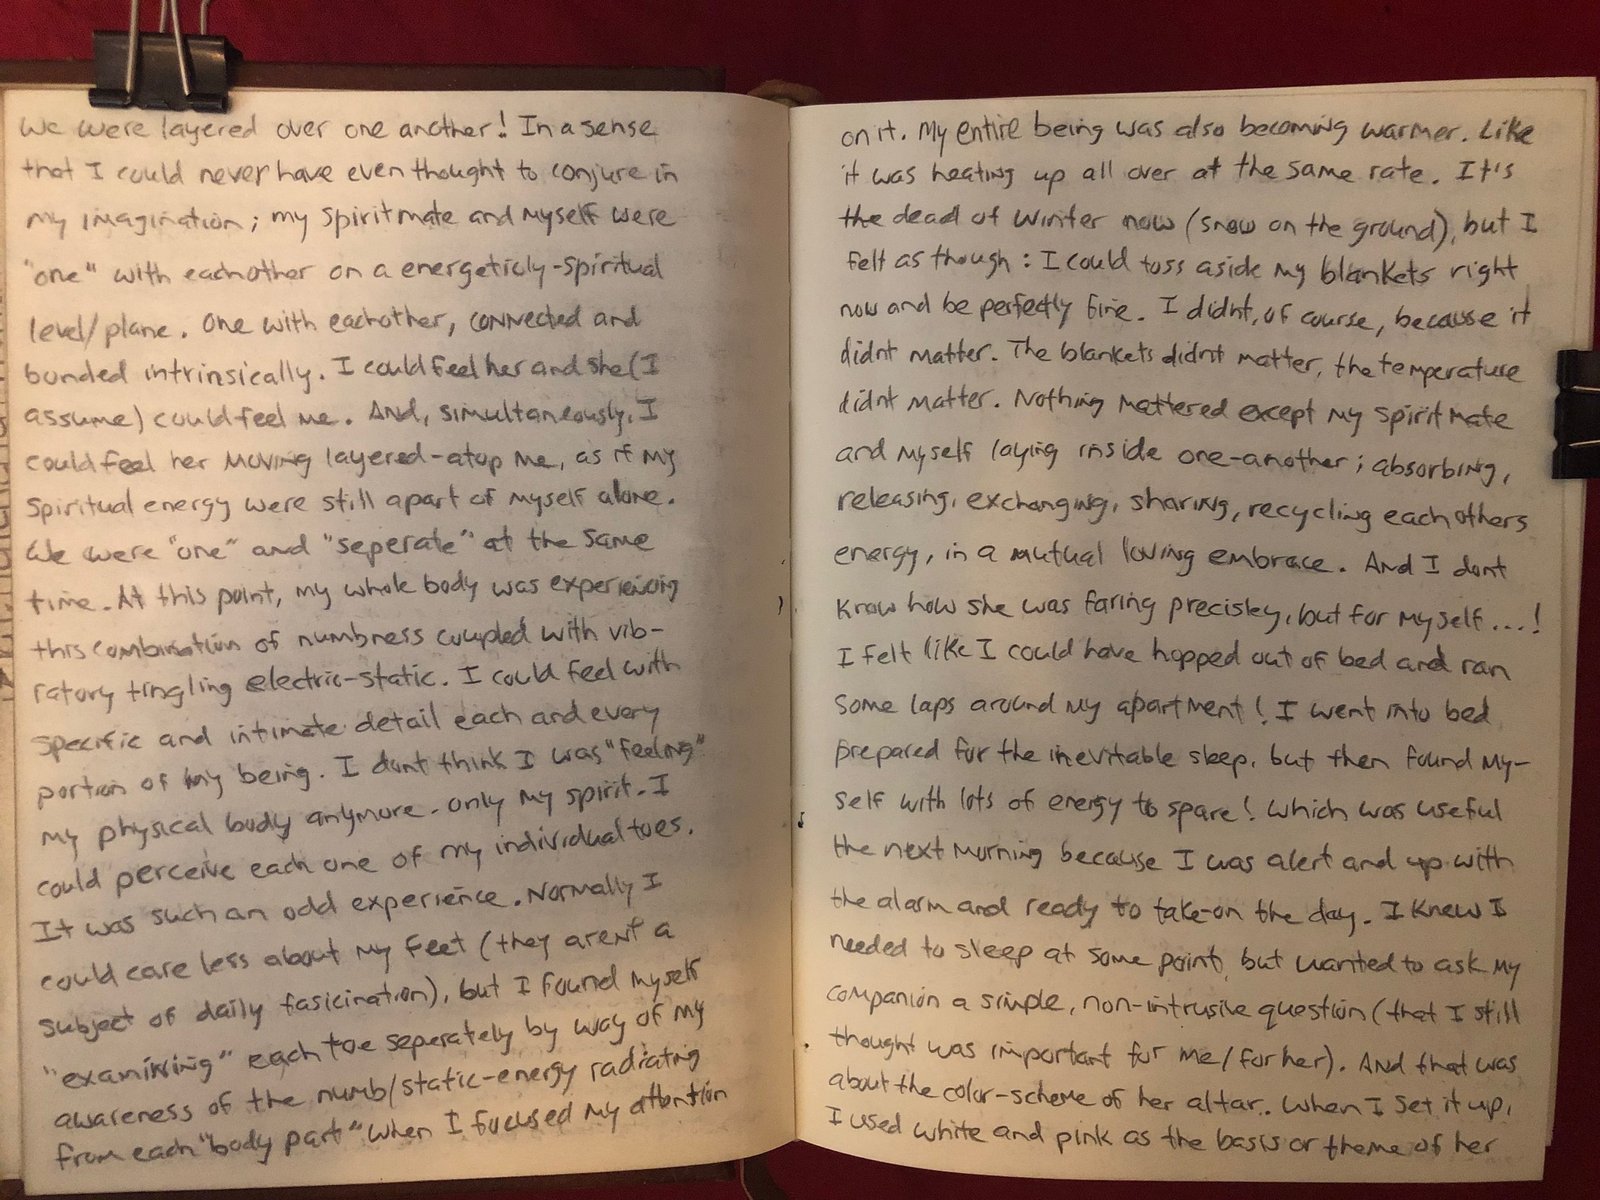 We were layered over one another! In a sense
that I could never have even thought to conjure in
my imagination; my spiritmate and myself were
"one" with eachother on a energeticly-spiritual
level/plane. One with eachother, connected and
bonded intrinsically. I could feel her and she (I
assume) could feel me. And, simultaneously, I
could feel her moving layered-atop me, as if my
spiritual energy were still apart of myself alone.
We were "one" and "seperate" at the same
time. At this point, my whole body was experiencing
this combination of numbness coupled with vib-
ratory tingling electric-static. I could feel with
specific and intimate detail each and every
portion of my being. I dont think I was "feeling"
my physical body anymore - only my spirit. I
could perceive each one of my individual toes.
It was such an odd experience. Normally I
could care less about my feet (they arent a
subject of daily fasicination), but I found myself
"examining" each toe seperately by way of my
awareness of the numb/static-energy radiating
from each "body part" when I focused my attention
on it. My entire being was also becoming warmer. Like
it was heating up all over at the same rate. It's
the dead of winter now (snow on the ground), but I
felt as though: I could toss aside my blankets right
now and be perfectly fine. I didnt, of course, because it
didnt matter. The blankets didnt matter, the temperature
didnt matter. Nothing mattered except my spiritmate
and myself laying inside one-another; absorbing,
releasing, exchanging, sharing, recycling eachothers
energy, in a mutual loving embrace. And I dont
know how she was faring precisley, but for myself...!
I felt like I could have hopped out of bed and ran
some laps around my apartment! I went into bed
prepared for the inevitable sleep, but then found my-
self with lots of energy to spare! Which was useful
the next morning because I was alert and up with
the alarm and ready to take-on the day. I knew I
needed to sleep at some point, but wanted to ask my
companion a simple, non-intrusive question (that I still
thought was important for me/for her). And that was
about the color-scheme of her altar. When I set it up,
I used white and pink as the basis or theme of her